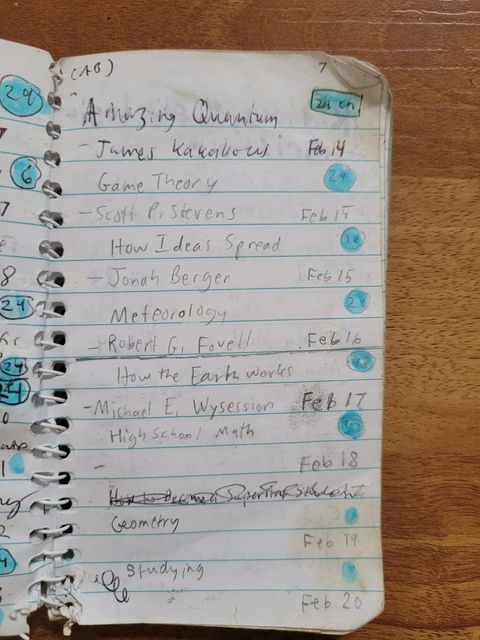 29
6
7
8
24
24
24
0
1
2
4
(AB) 7
Amazing Quantum 24 ch
- James Kakalious Feb 14
Game Theory 24
- Scott P. Stevens Feb 15
How Ideas Spread 12
- Jonah Berger Feb 15
Meteorology 24
- Robert G. Fovell Feb 16
How the Earth works
- Michael E. Wysession Feb 17
High School Math 36
- Feb 18
How to Become a Superstar Student
Geometry
Feb 19
Studying
Feb 20